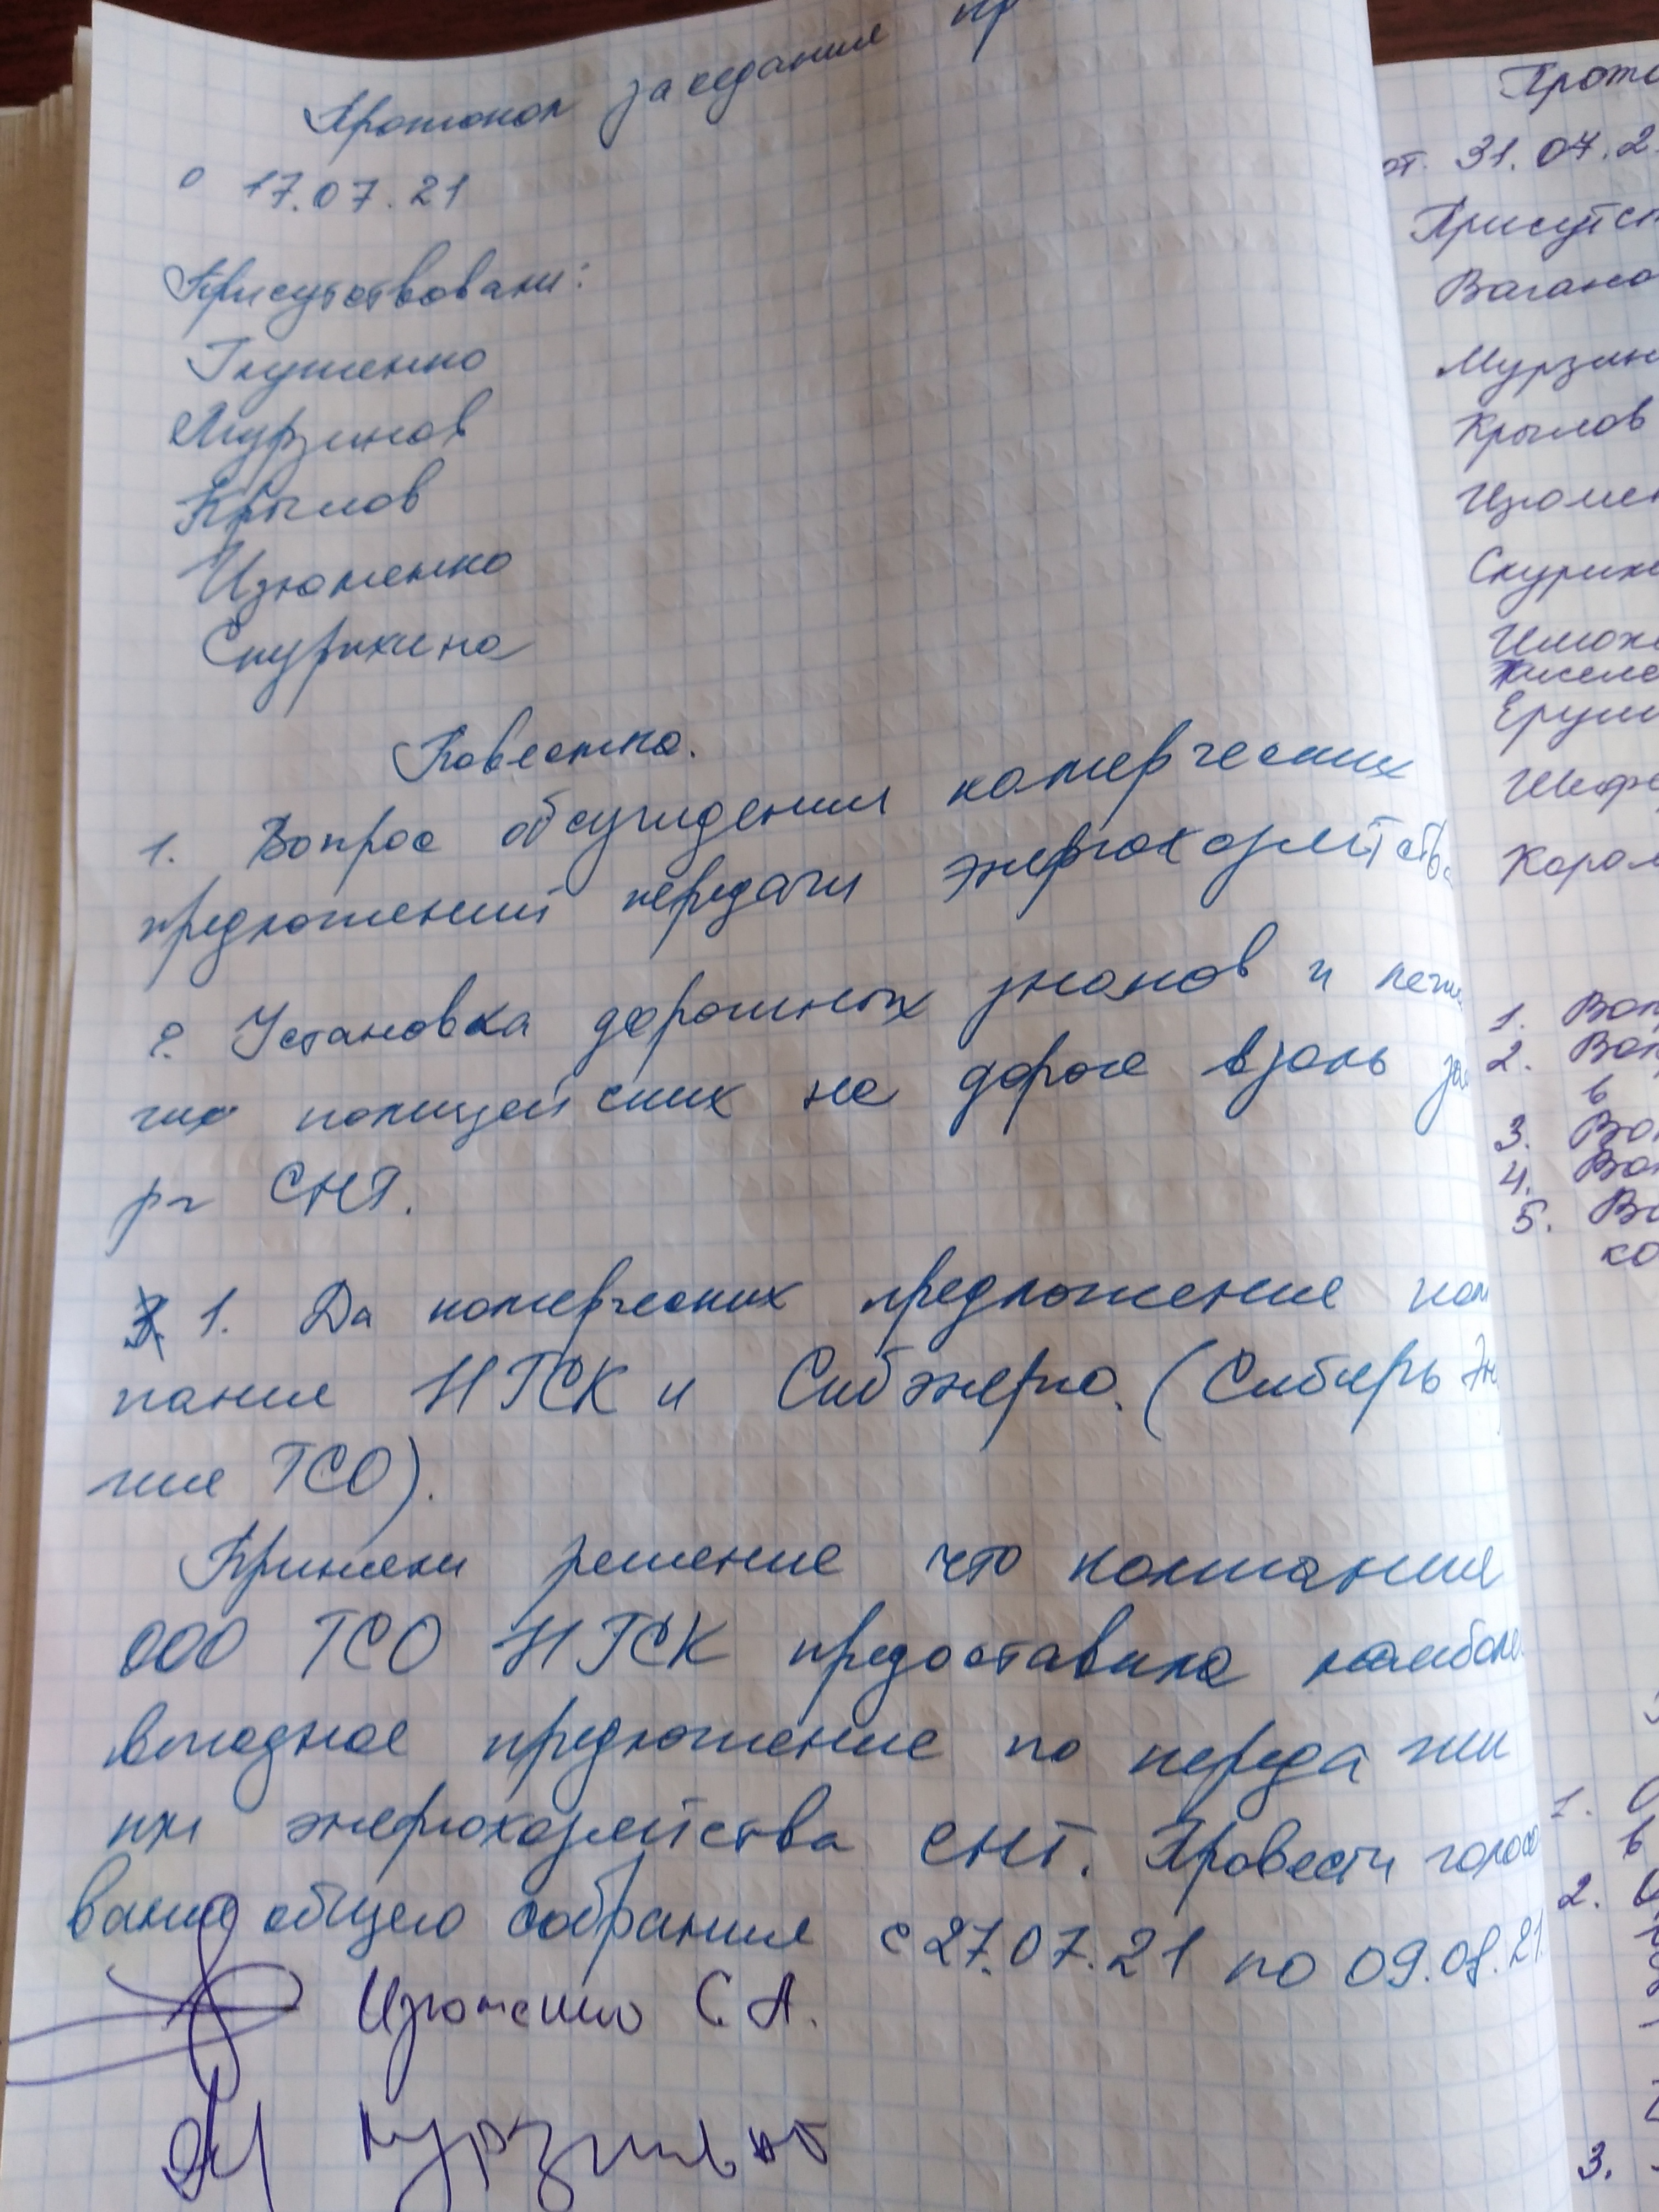 Протокол заседания пр
17.07.21
Присутствовали:
Глушенко
Мурзинов
Крылов
Изюменко
Скурихина
Повестка.
1. Вопрос обсуждения комерческих
предложений передачи энергохозяйства
2. Установка дорожных знаков и леж
чих полицейских на дороге вдоль за
ра СНТ.
1. Да комерческих предложение ком
пание НГСК и Сибэнерго. (Сибирь Эн
гие ТСО).
Приняли решение что компания
ООО ТСО НГСК предоставила наиболе
выгодное предложение по передачи
энергохозяйства СНТ. Провести голосо
вание общего собрания с 27.07.21 по 09.08.21.
Изюменко С.А.
Мурзинов
Прото
от. 31.07.2
Присутст
Вагано
Мурзин
Крылов
Изюмен
Скурихи
Киселе
Ерум
Шефе
Корол
1. Воп
2. Воп
в
3. Во
4. Воп
5. Во
ко
1. О
в
2. О
3.